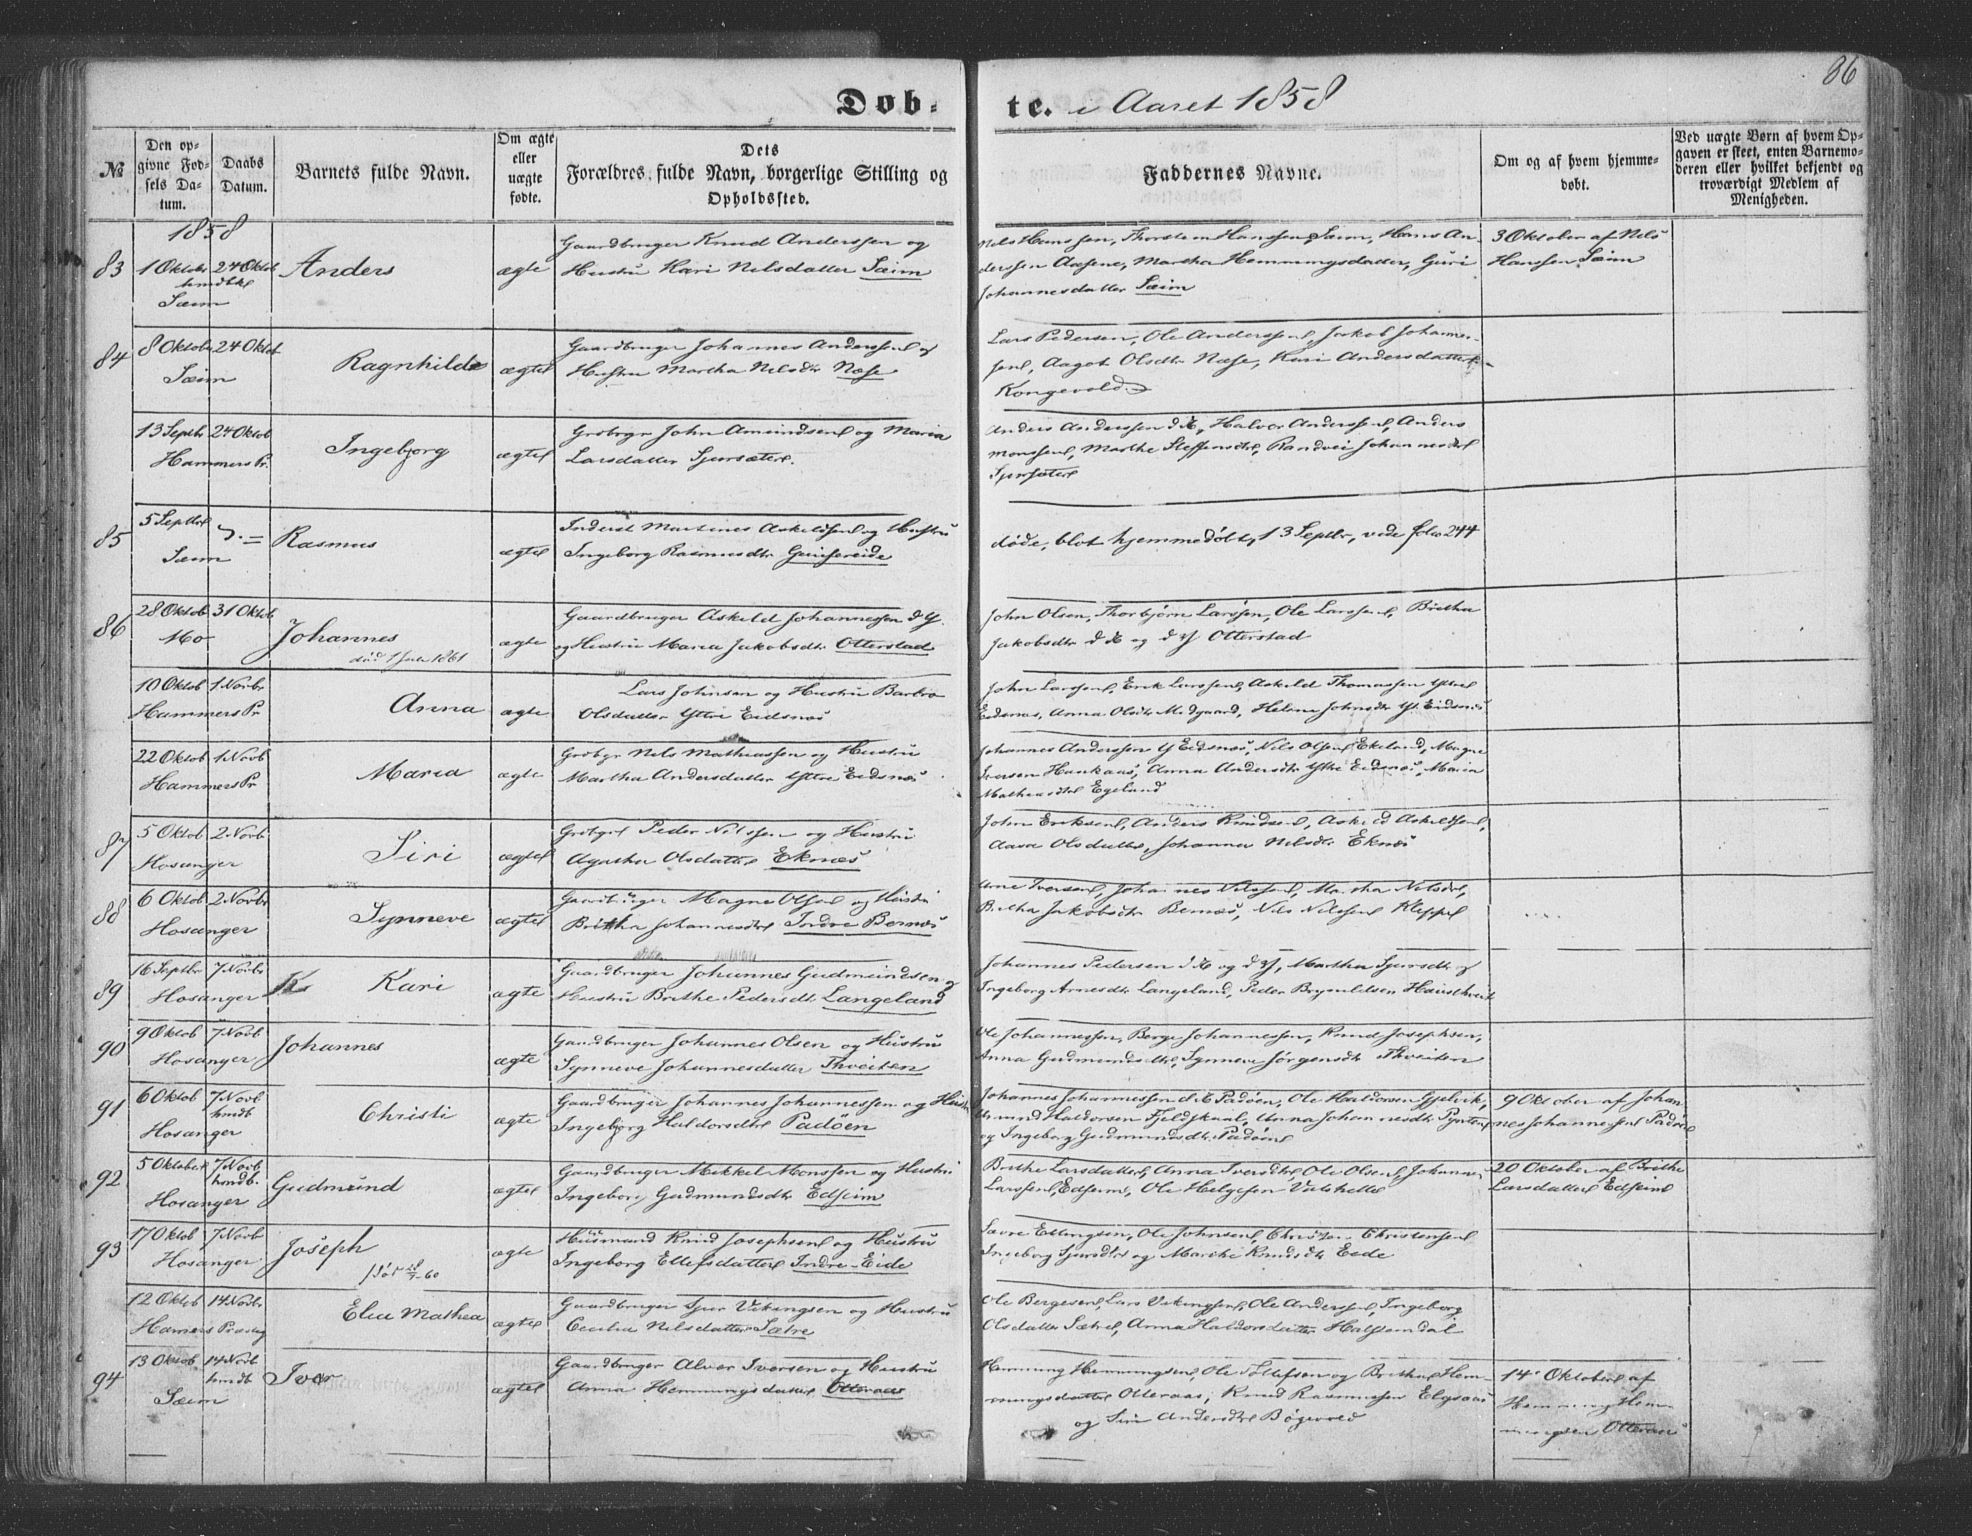 86
Døb-te. i Aaret 1858
№
Den opgivne Fødsels Datum.
Daabs Datum.
Barnets fulde Navn.
Om ægte eller uægte fødte.
Dets Forældres fulde Navn, borgerlige Stilling og Opholdssted.
Faddernes Navne.
Om og af hvem hjemmedøbt.
Ved uægte Børn af hvem Opgaven er skeet, enten Barnemoderen eller hvilket bekjendt og troværdigt Medlem af Menigheden.
1858
83 1 Oktobr 24 Oktob hmdbt Sæim
Anders
ægte
Gaardbruger Knud Anderssen og
Hustru Kari Nelsdatter Sæim
Nels Hanssen, Thorstein Hanssen Sæim, Hans An-
derssen Aasene, Martha Hemmingsdatter, Guri
Johannesdatter Sæim
3 Oktober af Nels
Hanssen Sæim
84 8 Oktobr 24 Oktob Sæim
Ragnhilde
ægte
Gaardbruger Johannes Anderssen og
Hustru Martha Nelsdtr Næse
Lars Pedersen, Ole Anderssen, Jakob Johannes-
sen, Aagot Olsdtr Næse, Kari Andersdatter
Kongevold
13 Septbr 24 Oktob Hammers Pr.
Ingeborg
ægte
Grdbrgr John Amundsen og Maria
Larsdatter Sjursæter.
Anders Anderssen d Æ, Halvor Anderssen, Anders
Monssen, Marthe Steffensdtr, Randvei Johannesdtr
Sjursæter
85 5 Septbr Sæim
Rasmus
ægte
Inderst Martines Askeldsen og Hustru
Ingeborg Rasmusdtr
døde, blot hjemmedøbt, 13 Septbr, vide folio 244
86 28 Oktob 31 Oktob Mo
Johannes
død 1861
ægte
Gaardbruger Askeld Johannessen d Y.
og Hustru Maria Jakobsdtr Otterstad
John Olsen, Thorbjørn Larssen, Ole Larssen, Bretha
Jakobsdtr d Æ og d Y Otterstad
10 Oktob 1 Novbr Hammers Pr
Anna
ægte
Lars Johnsen og Hustru Barbro
Olsdatter Yttre Eidsnæs
John Larssen, Erik Larssen, Askeld Thomassen Yttre
Eidsnæs, Anna Olsdtr Midgaard, Helene Johnsdtr Yt. Eidsnæs
22 Oktob 1 Novb Hammers Pr
Maria
ægte
Grdbgr Nels Mathiassen og Hustru
Martha Andersdatter Yttre Eidsnæs
Johannes Anderssen Y Eidsnæs, Nils Olsen Ekeland, Magne
Iversen Haukaas, Anna Andersdtr Yttre Eidsnæs, Maria
Mathiasdtr Egeland
87 5 Oktob 2 Novb Hosanger
Siri
ægte
Grdbgr Peder Nilssen og Hustru
Agatha Olsdatter Eknæs
John Eriksen, Anders Knudsen, Askeld Askeldsen,
Aasa Olsdatter, Johanna Nelsdtr Eknæs
88 6 Oktob 2 Novbr Hosanger
Synneve
ægte
Gaardbruger Magne Olsen og Hustru
Britha Johannesdtr Indre Bernæs
Arne Iversen, Johannes Nilssen, Martha Nilsdtr,
Britha Jakobsdtr Bernæs, Nils Nilssen Kleppe
89 16 Septbr 7 Novbr Hosanger
Kari
ægte
Gaardbruger Johannes Gudmundsen og
Hustru Brithe Pedersdtr Langeland
Johannes Pedersen d Æ og d Y, Martha Sjursdtr og
Ingeborg Arnesdtr Langeland, Peder Brynildsen
90 9 Oktob 7 Novb Hosanger
Johannes
ægte
Gaardbruger Johannes Olsen og Hustru
Synneve Johannesdatter Thveiten
Ole Johannessen, Berge Johannessen, Knud Josephsen,
Anna Gudmundsdtr, Synneve Jørgensdt Thveiten
91 6 Oktob 7 Novb hmdb Hosanger
Christi
ægte
Gaardbruger Johannes Johannessen og Hustru
Ingeborg Haldorsdtr Padøen
Johannes Johannessen d. E Padøen, Ole Haldorsen Gjelvik,
Haldorsen Fjeldskaal, Anna Johannesdtr
og Ingeborg Gudmundsdtr Padøen
9 Oktober af Johan
nes Johannessen Padøen
92 5 Oktober 7 Novb hmdb. Hosanger
Gudmund
ægte
Gaardbruger Mikkel Monssen og Hustru
Ingeborg Gudmundsdtr Edseim
Brithe Larsdatter, Anna Iversdtr, Ole Olsen, Johannes
Larssen, Edseim, Ole Helgesen
20 Oktober af Brithe
Larsdatter Edseim
93 17 Oktob 7 Novb Hosanger
Joseph
ægte
Husmand Knud Josephsen og Hustru
Ingeborg Ellefsdatter Indre-Eide
Ellingsen, Ole Johnsen, Christen Christensen
Ingeborg Sjursdtr og Marthe Knudsdtr Eide
12 Oktob 14 Novbr Hamers Præstg
Elen Mathea
ægte
Gaardbruger Sjur Vikingsen og Hustru
Cecilia Nilsdatter Sætre
Ole Bergesen, Lars Vikingsen, Ole Anderssen, Ingeborg
Olsdatter Sætre, Anna Haldorsdatter
94 13 Oktob 14 Novb hmdb Sæim
Iver
ægte
Gaardbruger Alver Iversen og Hustru
Anna Hemmingsdatter Otteraas
Hemming Hemmingsen, Ole og Britha Hem-
mingsdatter Otteraas, Knud Rasmussen
og Siri Andersdtr
14 Oktober af
Hemming Hem-
mingsen Otteraas